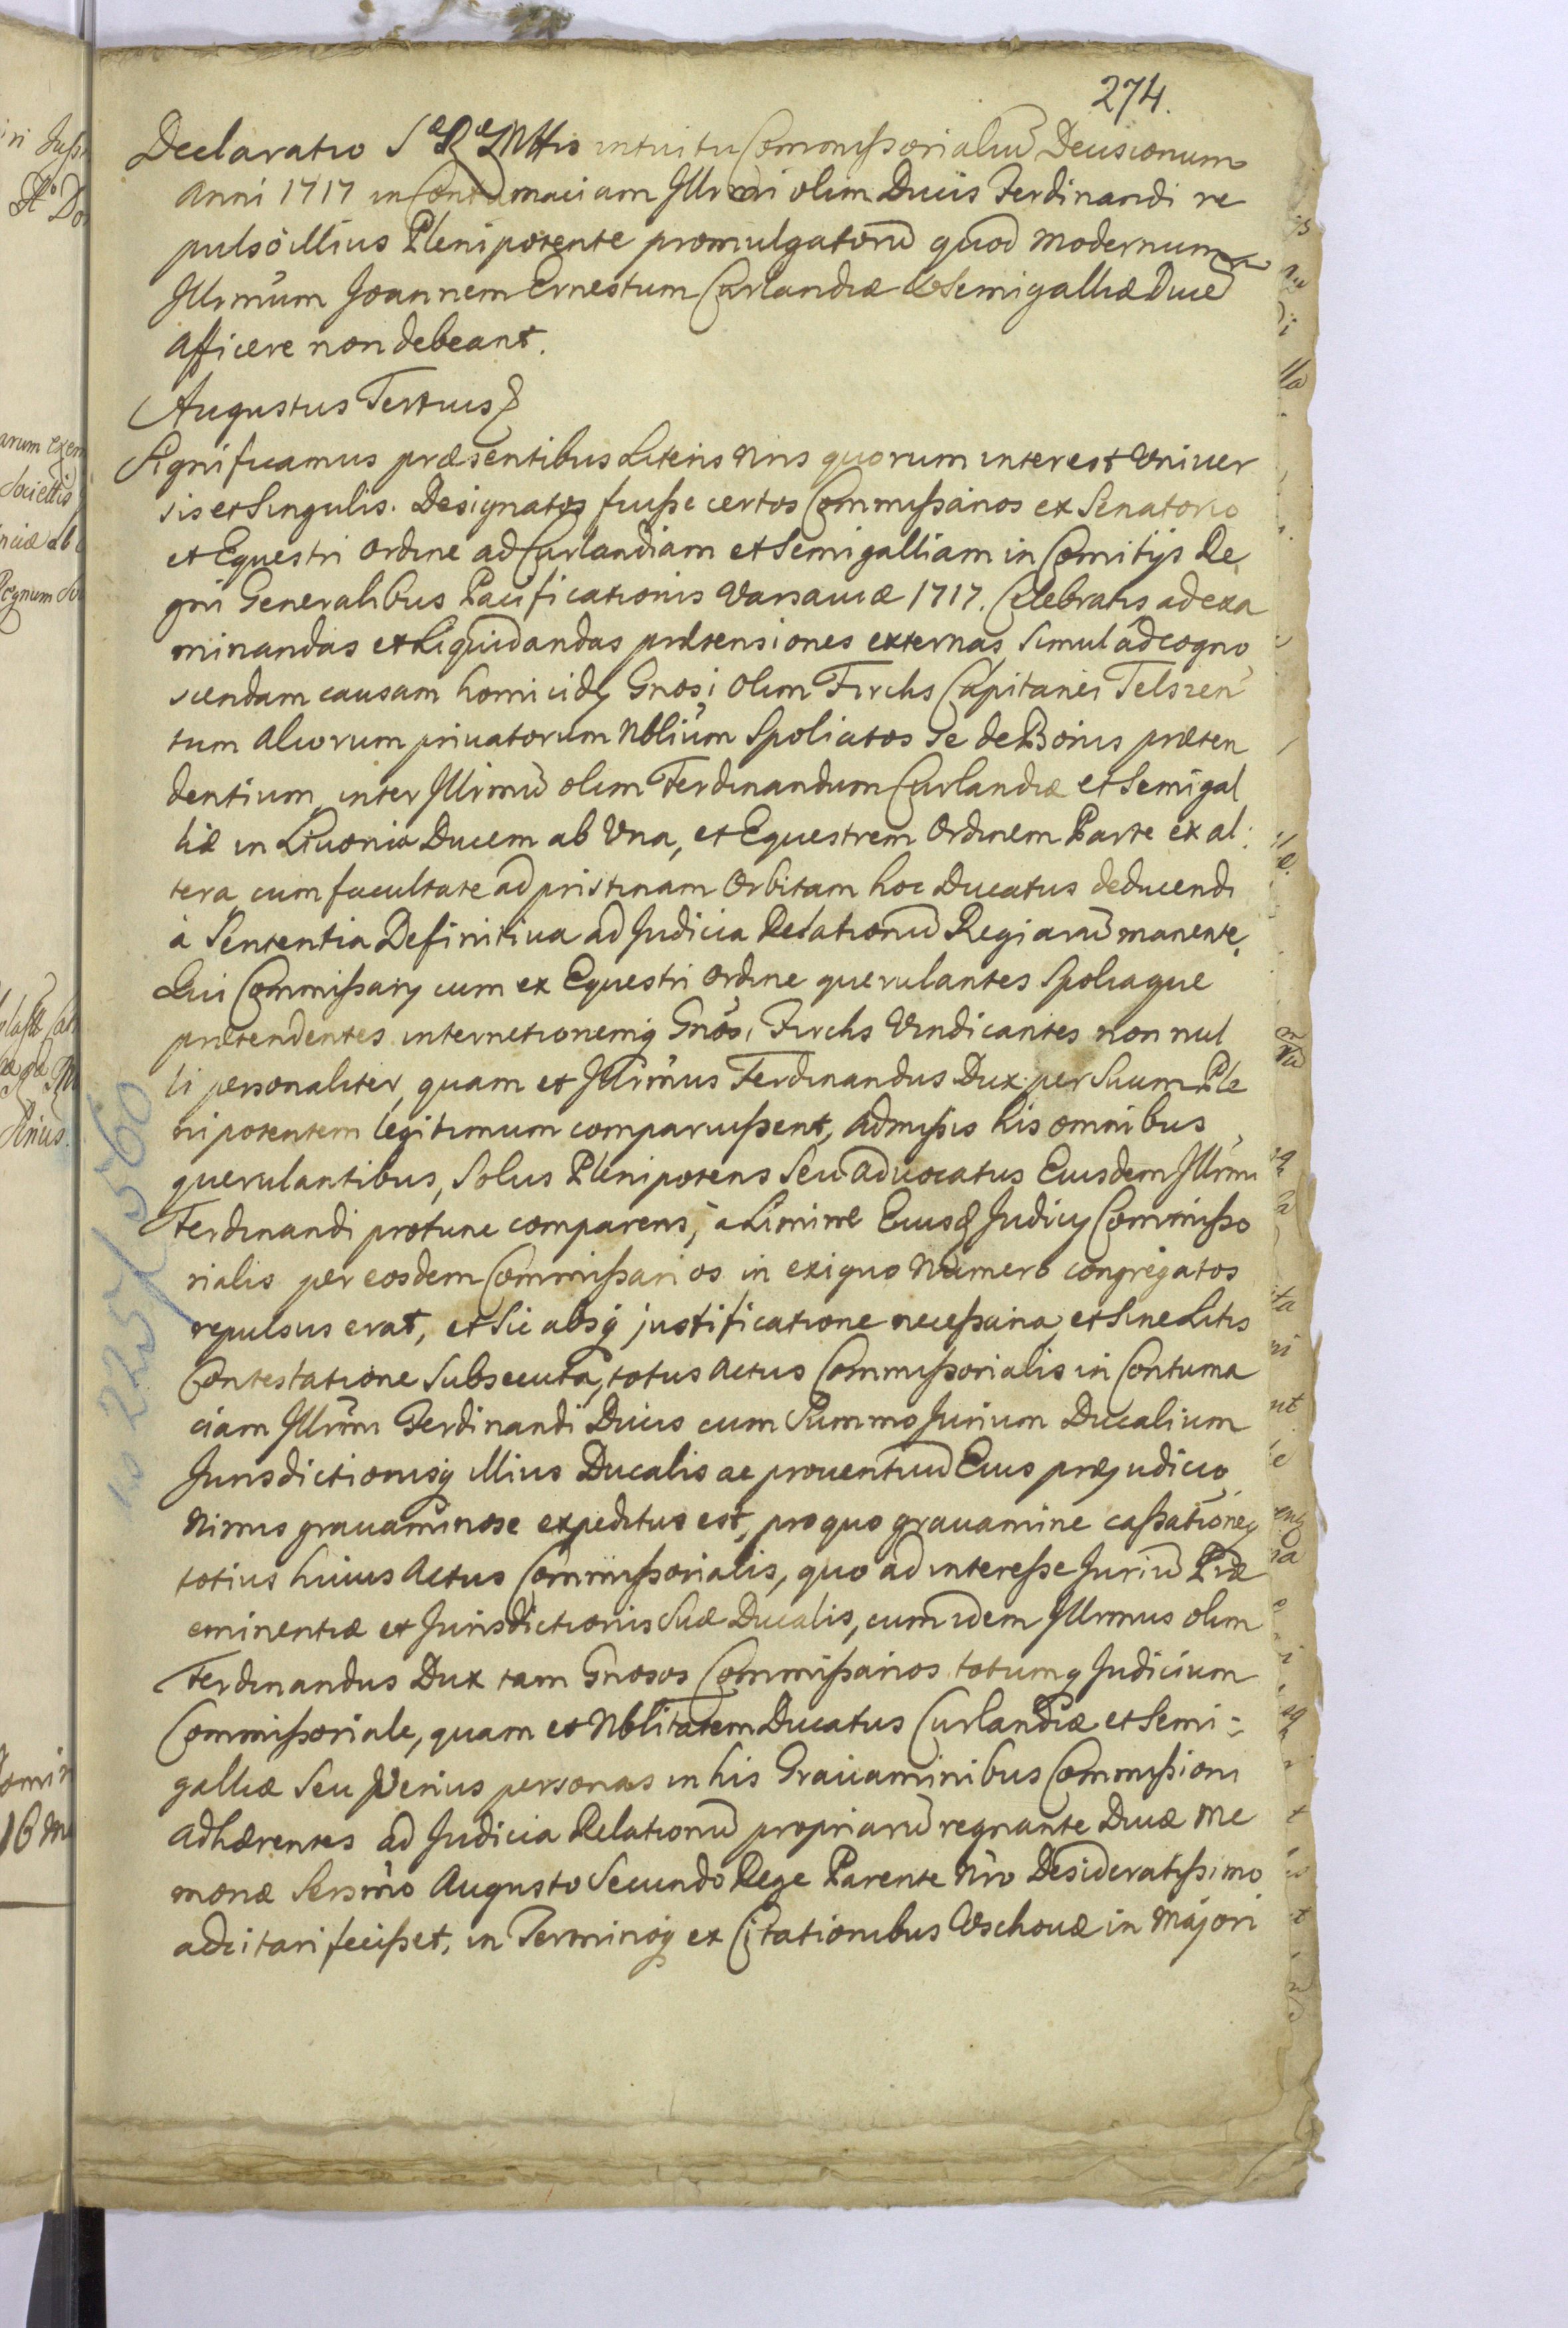 274.
Declaratio S R Mttis intuitu Commissorialiu Decisionum
Anni 1717 in Contumaciam Illrmi olim Ducis Ferdinandi re
pulso illius Plenipotente promulgatoru quod modernum
Illrmum Joannem Ernestum Curlandiæ & Semigalliæ Duce
Afficere non debeant.
Augustus Tertius &
Significamus præsentibus Literis Nris quorum interest Vniver
sis et Singulis. Designatos fuisse certos Commissarios ex Senatorio
et Equestri Ordine ad Curlandiam et Semigalliam in Comitijs Re
gni Generalibus Pacificationis Varsaviæ 1717. Celebratis ad exa
minandas et Liquidandas prætensiones externas, simul ad cogno
scendam causam homicidy Gnosi olim Fircks Capitanei Telszen
tum Aliorum privatorum Nblium Spoliatos Se de Bonis præten
dentium, inter Illrmu olim Ferdinandum Curlandiæ et Semigal
liæ in Livonia Ducem ab Vna, et Equestrem Ordinem Parte ex al:
tera, cum facultate ad pristinam Orbitam hoc Ducatus deducendi
à Sententia Definitiva ad Judicia Relationu Regiaru manente.
Qui Commissary cum ex Equestri Ordine querulantes Spoliaque
prætendentes internetionemq Gnosi Fircks Vindicantes non nul
li personaliter, quam et Illrmus Ferdinandus Dux per Suum Ple
nipotentem legitimum comparuissent, admissis his omnibus
querulantibus, Solus Plenipotens Seu advocatus Eiusdem Illrmi
Ferdinandi protunc comparens, à Limine Eiusd Judicy Commisso
rialis per eosdem Commissarios in exiguo Numero congregatos
repulsus erat, et Sic absq justificatione necessaria, et Sine Litis
Contestatione Subsecuta, totus Actus Commissorialis in Contuma
ciam Illrmi Ferdinandi Ducis cum Summo Jurium Ducalium
Jurisdictionisq illius Ducalis ac proventuu Eius præjudicio
Nimis gravaminose expeditus est, pro quo gravamine cassationeq
totius huius Actus Commissorialis, quo ad interesse Juriu Præ
eminentiæ et Jurisdictionis Suæ Ducalis, cum idem Illrmus olim
Ferdinandus Dux tam Gnosos Commissarios totumq Judicium
Commissoriale, quam et Nblitatem Ducatus Curlandiæ et Semi=
galliæ Seu Verius personas in his Gravaminibus Commissioni
adhærentes ad Judicia Relationu propriaru regnante Divæ Me
moriæ Sersmo Augusto Secundo Rege Parente Nro Desideratissimo
adcitari fecisset, in Terminoq ex Citationibus Vschovæ in Majori